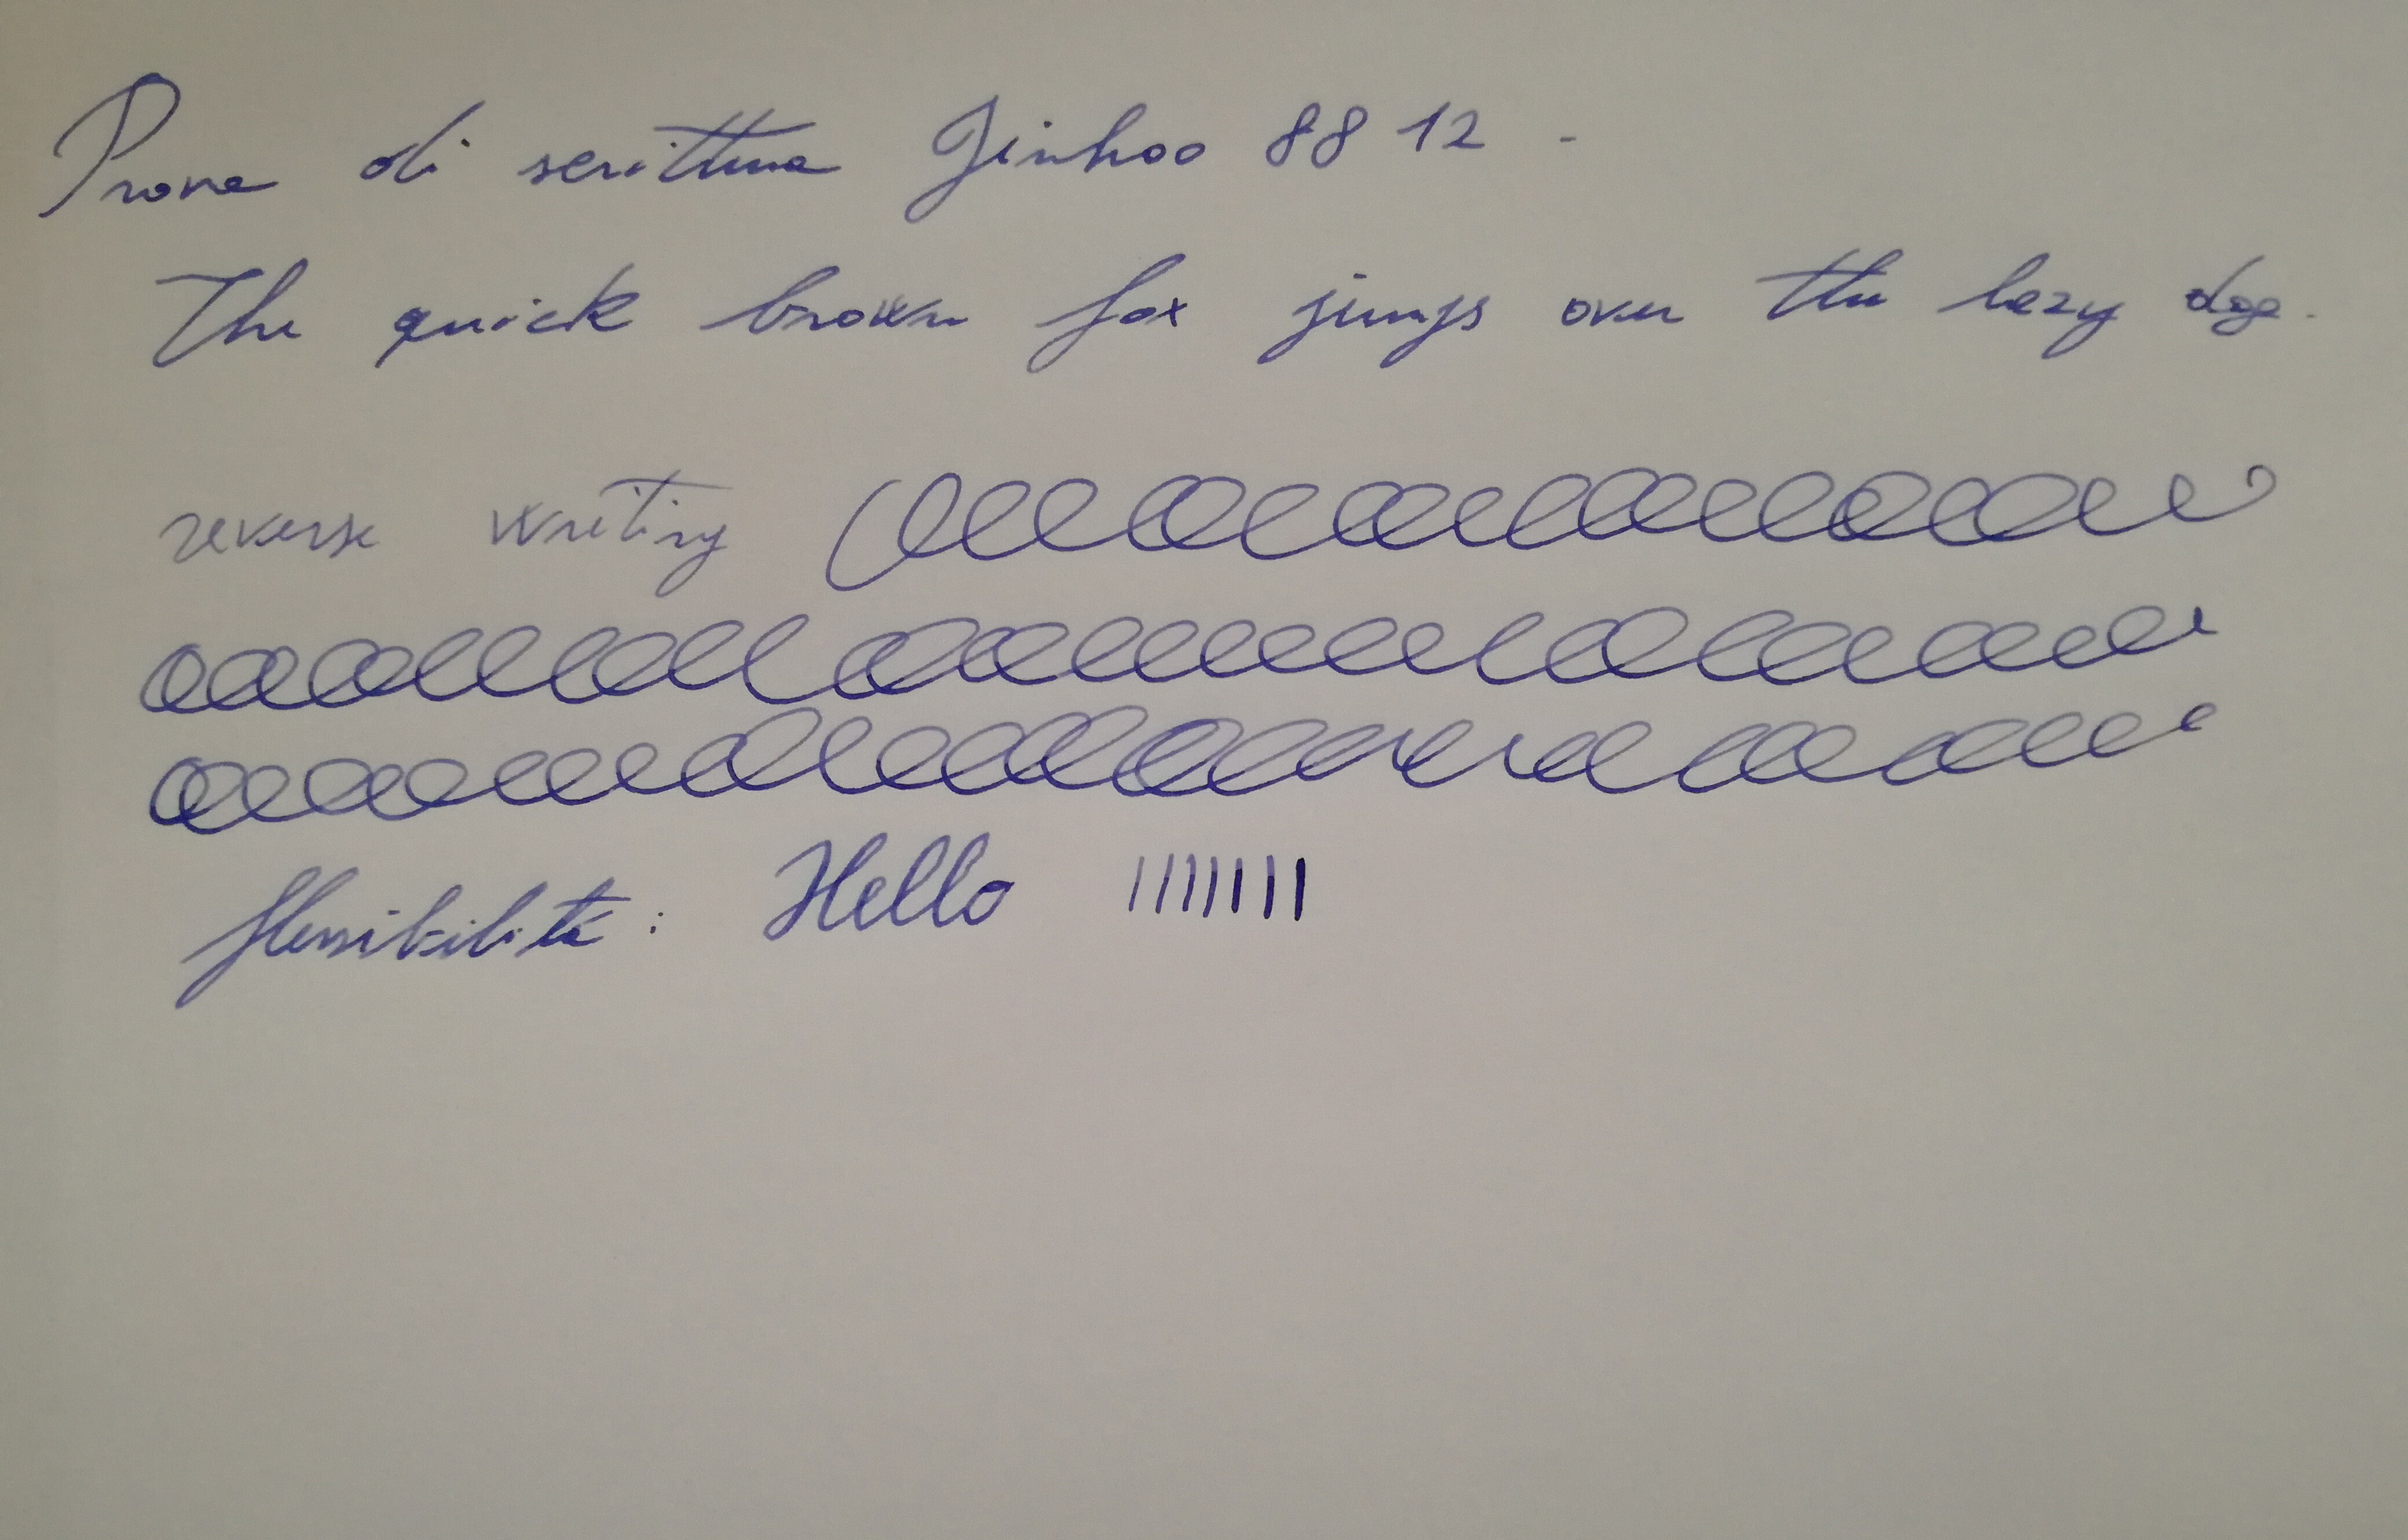 Prova di scrittura Jinhao 8812 -
The quick brown fox jumps over the lazy dog.
reverse writing
flessibilità: Hello